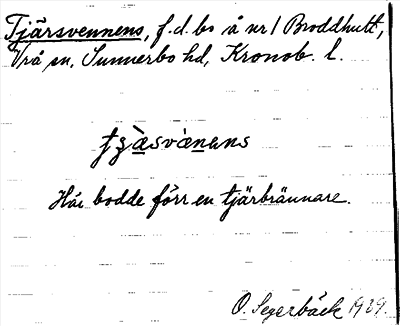 Tjärsvennens, f.d. bo å nr 1 Broddhult,
Vrå sn, Sunnerbo hd, Kronob. l.
Här bodde förr en tjärbrännare.
O. Segerbäck 1929.